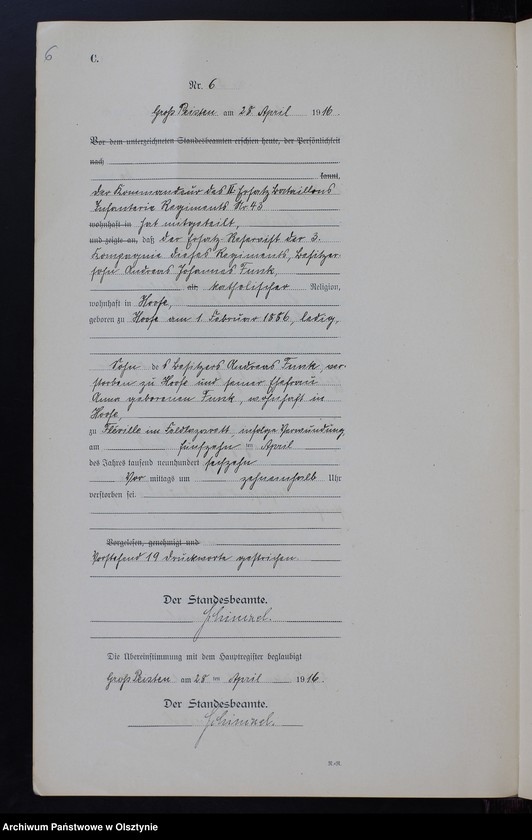 6
C.
Nr. 6
Groß Peisten am 28 April 1916.
Vor dem unterzeichneten Standesbeamten erschien heute, der Persönlichkeit
nach
kannt,
Der Kommandeur des II. Ersatz Bataillons
Infanterie Regiments Nr 43
wohnhaft in hat mitgeteilt,
und zeigte an, daß der Ersatz-Reservist der 3.
Kompagnie dieses Regiments, Besitzer
sohn Andreas Johannes Funk,
alt, katholischer Religion,
wohnhaft in Hoofe,
geboren zu Hoofe am 1. Februar 1886, ledig,
Sohn des Besitzers Andreas Funk, ver-
storben zu Hoofe und seiner Ehefrau
Anna geborenen Funk, wohnhaft in
Hoofe,
zu Fléville im Feldlazarett, infolge Verwundung
am fünfzehn ten April
des Jahres tausend neunhundert sechzehn
Vor mittags um zehneinhalb Uhr
verstorben sei.
Vorgelesen, genehmigt und
Vorstehend 19 Druckworte gestrichen
Der Standesbeamte.
Die Übereinstimmung mit dem Hauptregister beglaubigt
Groß Peisten am 28 ten April 1916.
Der Standesbeamte.
Archiwum Państwowe w Olsztynie